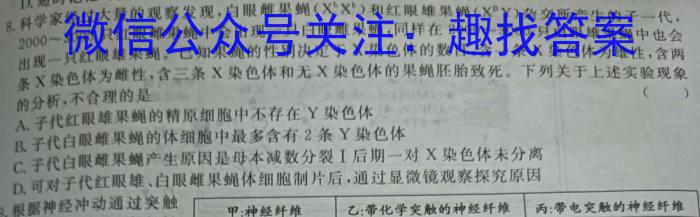 8.科学家 大量的观察发现,白眼雌果蝇(XᵇXᵇ)和红眼雄果蝇(XᴮY)杂交所产生的子一代,
2000~
微信公众号关注:趣找答案
出现一只红眼雄果蝇。已知果蝇的性别决定 X染色体的数 含一条X染色体为雄性,含两
条X染色体为雌性,含三条X染色体和无X染色体的果蝇胚胎致死。下列关于上述实验现象
的分析,不合理的是 ( )
A.子代红眼雄果蝇的精原细胞中不存在Y染色体
B.子代白眼雌果蝇的体细胞中最多含有2条Y染色体
C.子代白眼雌果蝇产生原因是母本减数分裂Ⅰ后期一对X染色体未分离
D.可对子代红眼雄、白眼雌果蝇体细胞制片后,通过显微镜观察探究原因
根据神经冲动通过突触
甲:神经纤维 乙:带化学突触的神经纤维 丙:带电突触的神经纤维